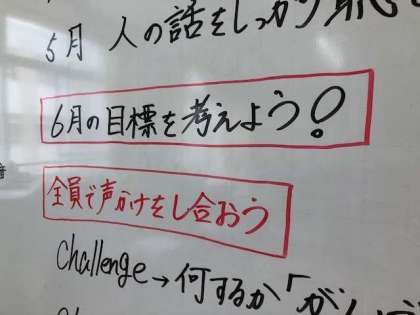 5月 人の話をしっかり
6月の目標を考えよう!
全員で声かけをし合おう
Challenge→何するか「が